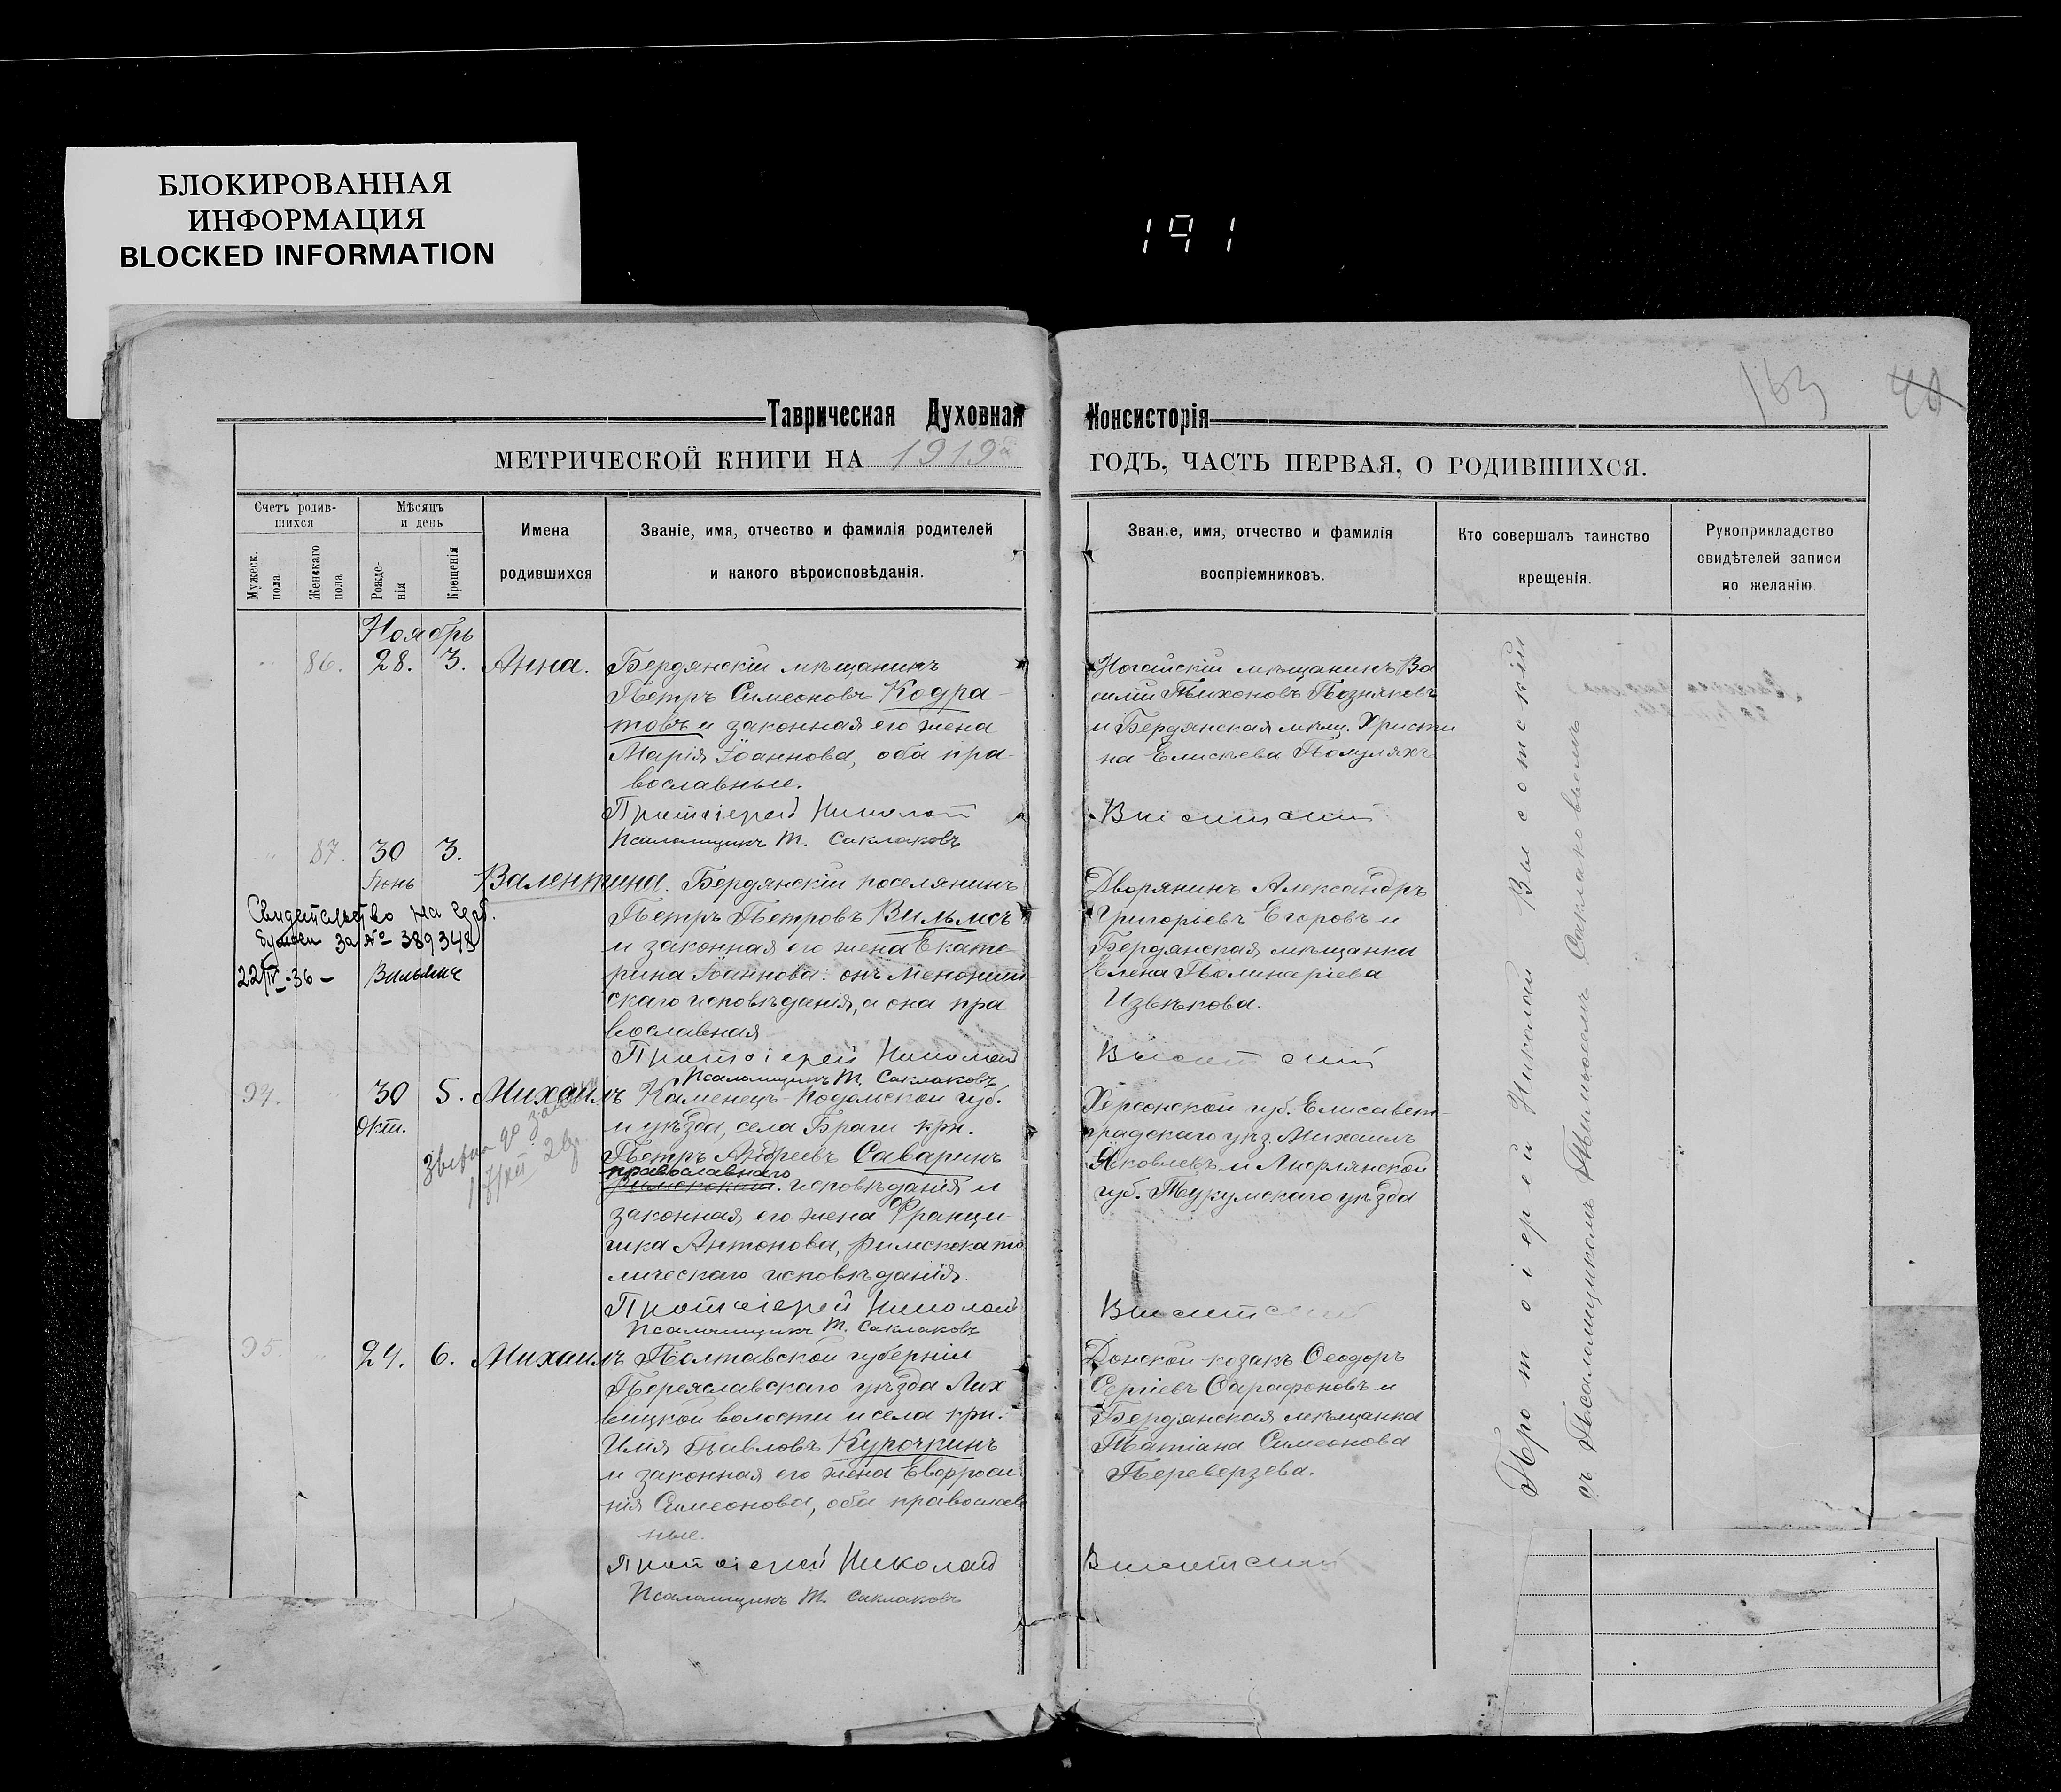 БЛОКИРОВАННАЯ
ИНФОРМАЦИЯ
BLOCKED INFORMATION
191
163
40
Таврическая Духовная Консисторія
МЕТРИЧЕСКОЙ КНИГИ НА 1919 ГОДЪ, ЧАСТЬ ПЕРВАЯ, О РОДИВШИХСЯ.
Счетъ родив-
шихся
Мужеск.
пола
Женскаго
пола
Мѣсяцъ
и день
Рожде-
нія
Крещенія
Имена
родившихся
Званіе, имя, отчество и фамилія родителей
и какого вѣроисповѣданія.
Званіе, имя, отчество и фамилія
воспріемниковъ.
Кто совершалъ таинство
крещенія.
Рукоприкладство
свидѣтелей записи
по желанію.
Ноябрь
86. 28. 3. Анна.
Бердянскій мѣщанинъ
Петръ Симеоновъ Кодра-
товъ и законная его жена
Марія Іоаннова, оба пра-
вославные.
Протоіерей Николай Высотскій
Псаломщикъ Т. Саклаковъ
Ногайскій мѣщанинъ Ва
силій Тихоновъ Позняковъ
и Бердянская мѣщ. Христи
на Елисѣева
87. 30 3.
Іюнь
Валентина.
Бердянскій поселянинъ
Петръ Петровъ Вильмсъ
и законная его жена Екате-
рина Іоаннова: онъ Менонит
скаго исповѣданія, а она пра
вославная
Протоіерей Николай Высотскій
Псаломщикъ Т. Саклаковъ
Дворянинъ Александръ
Григорьевъ Егоровъ и
Бердянская мѣщанка
Елена Полинаріева
Извѣкова.
Свидетельство на герб.
бумаги за № 389348
22/IV-36 -
94. 30 5. Михаилъ
Окт.
Каменецъ-Подольской губ.
и уѣзда, села Браги крн.
Петръ Андреевъ Саваринъ
православнаго
исповѣданія и
законная его жена Франци-
шка Антонова, римскокато
лическаго исповѣданія.
Протоіерей Николай Высотскій
Псаломщикъ Т. Саклаковъ
Херсонской губ. Елисавет-
градскаго уѣз. Михаилъ
Яковлевъ и Лифлянской
губ. Тукумскаго уѣзда
95. 24. 6. Михаилъ
Полтавской губерніи
Переяславскаго уѣзда Лих
вицкой волости и села крн.
Илія Павловъ Курочкинъ
и законная его жена Евфроси
нія Симеонова, оба православ
ные.
Протоіерей Николай Высотскій
Псаломщикъ Т. Саклаковъ
Донской козакъ Ѳеодоръ
Сергіевъ Сарафоновъ и
Бердянская мѣщанка
Татіана Симеонова
Переверзева.
Протоіерей Николай Высотскій
съ Псаломщикомъ Тимоѳеемъ Саклаковымъ